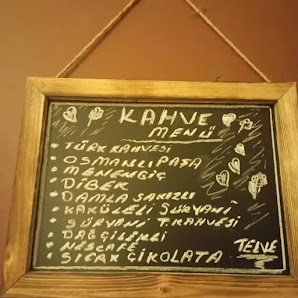 KAHVE
MENÜ
• TÜRK KAHVESİ
• OSMANLI PAŞA
• MENENGİÇ
• DİBEK
• DAMLA SAKIZLI
• KAKÜLELİ SÜRYANİ
• SÜRYANİ T.KAHVESİ
• DAĞ ÇİLEKLİ
• NESCAFE
• SICAK ÇİKOLATA
TELVE